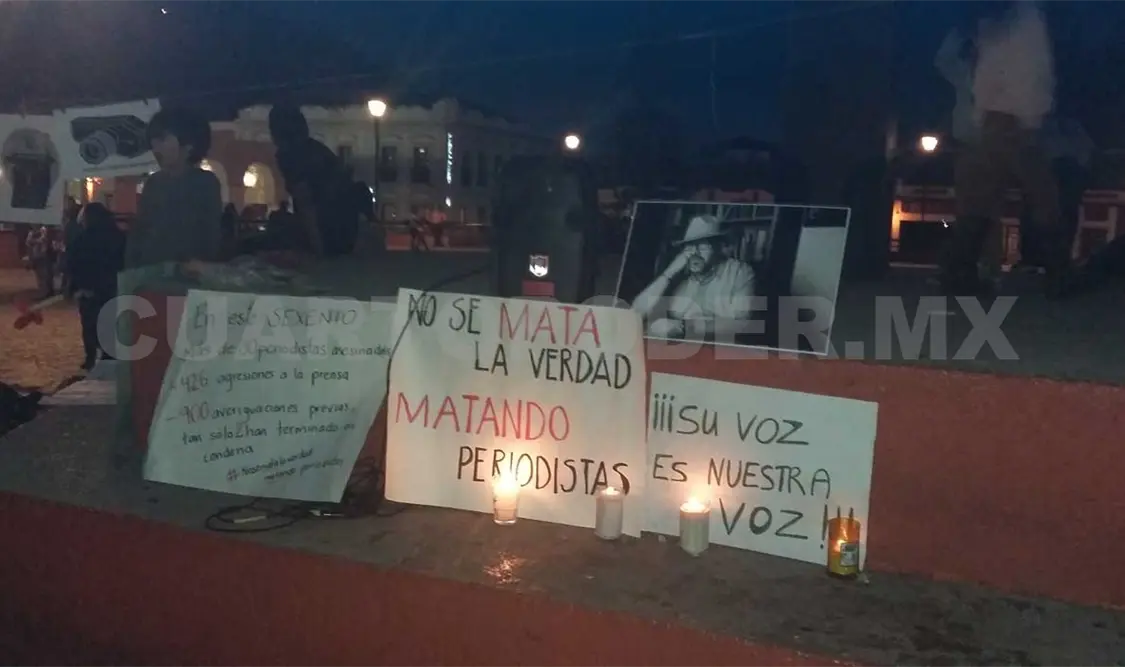 En este SEXENIO
Más de 30 periodistas asesinados
- 426 agresiones a la prensa
- 900 averiguaciones previas,
tan solo 2 han terminado en
condena
matando periodistas
NO SE MATA
LA VERDAD
MATANDO
PERIODISTAS
¡¡¡SU VOZ
ES NUESTRA
VOZ!!!
CUARTOPODER.MX